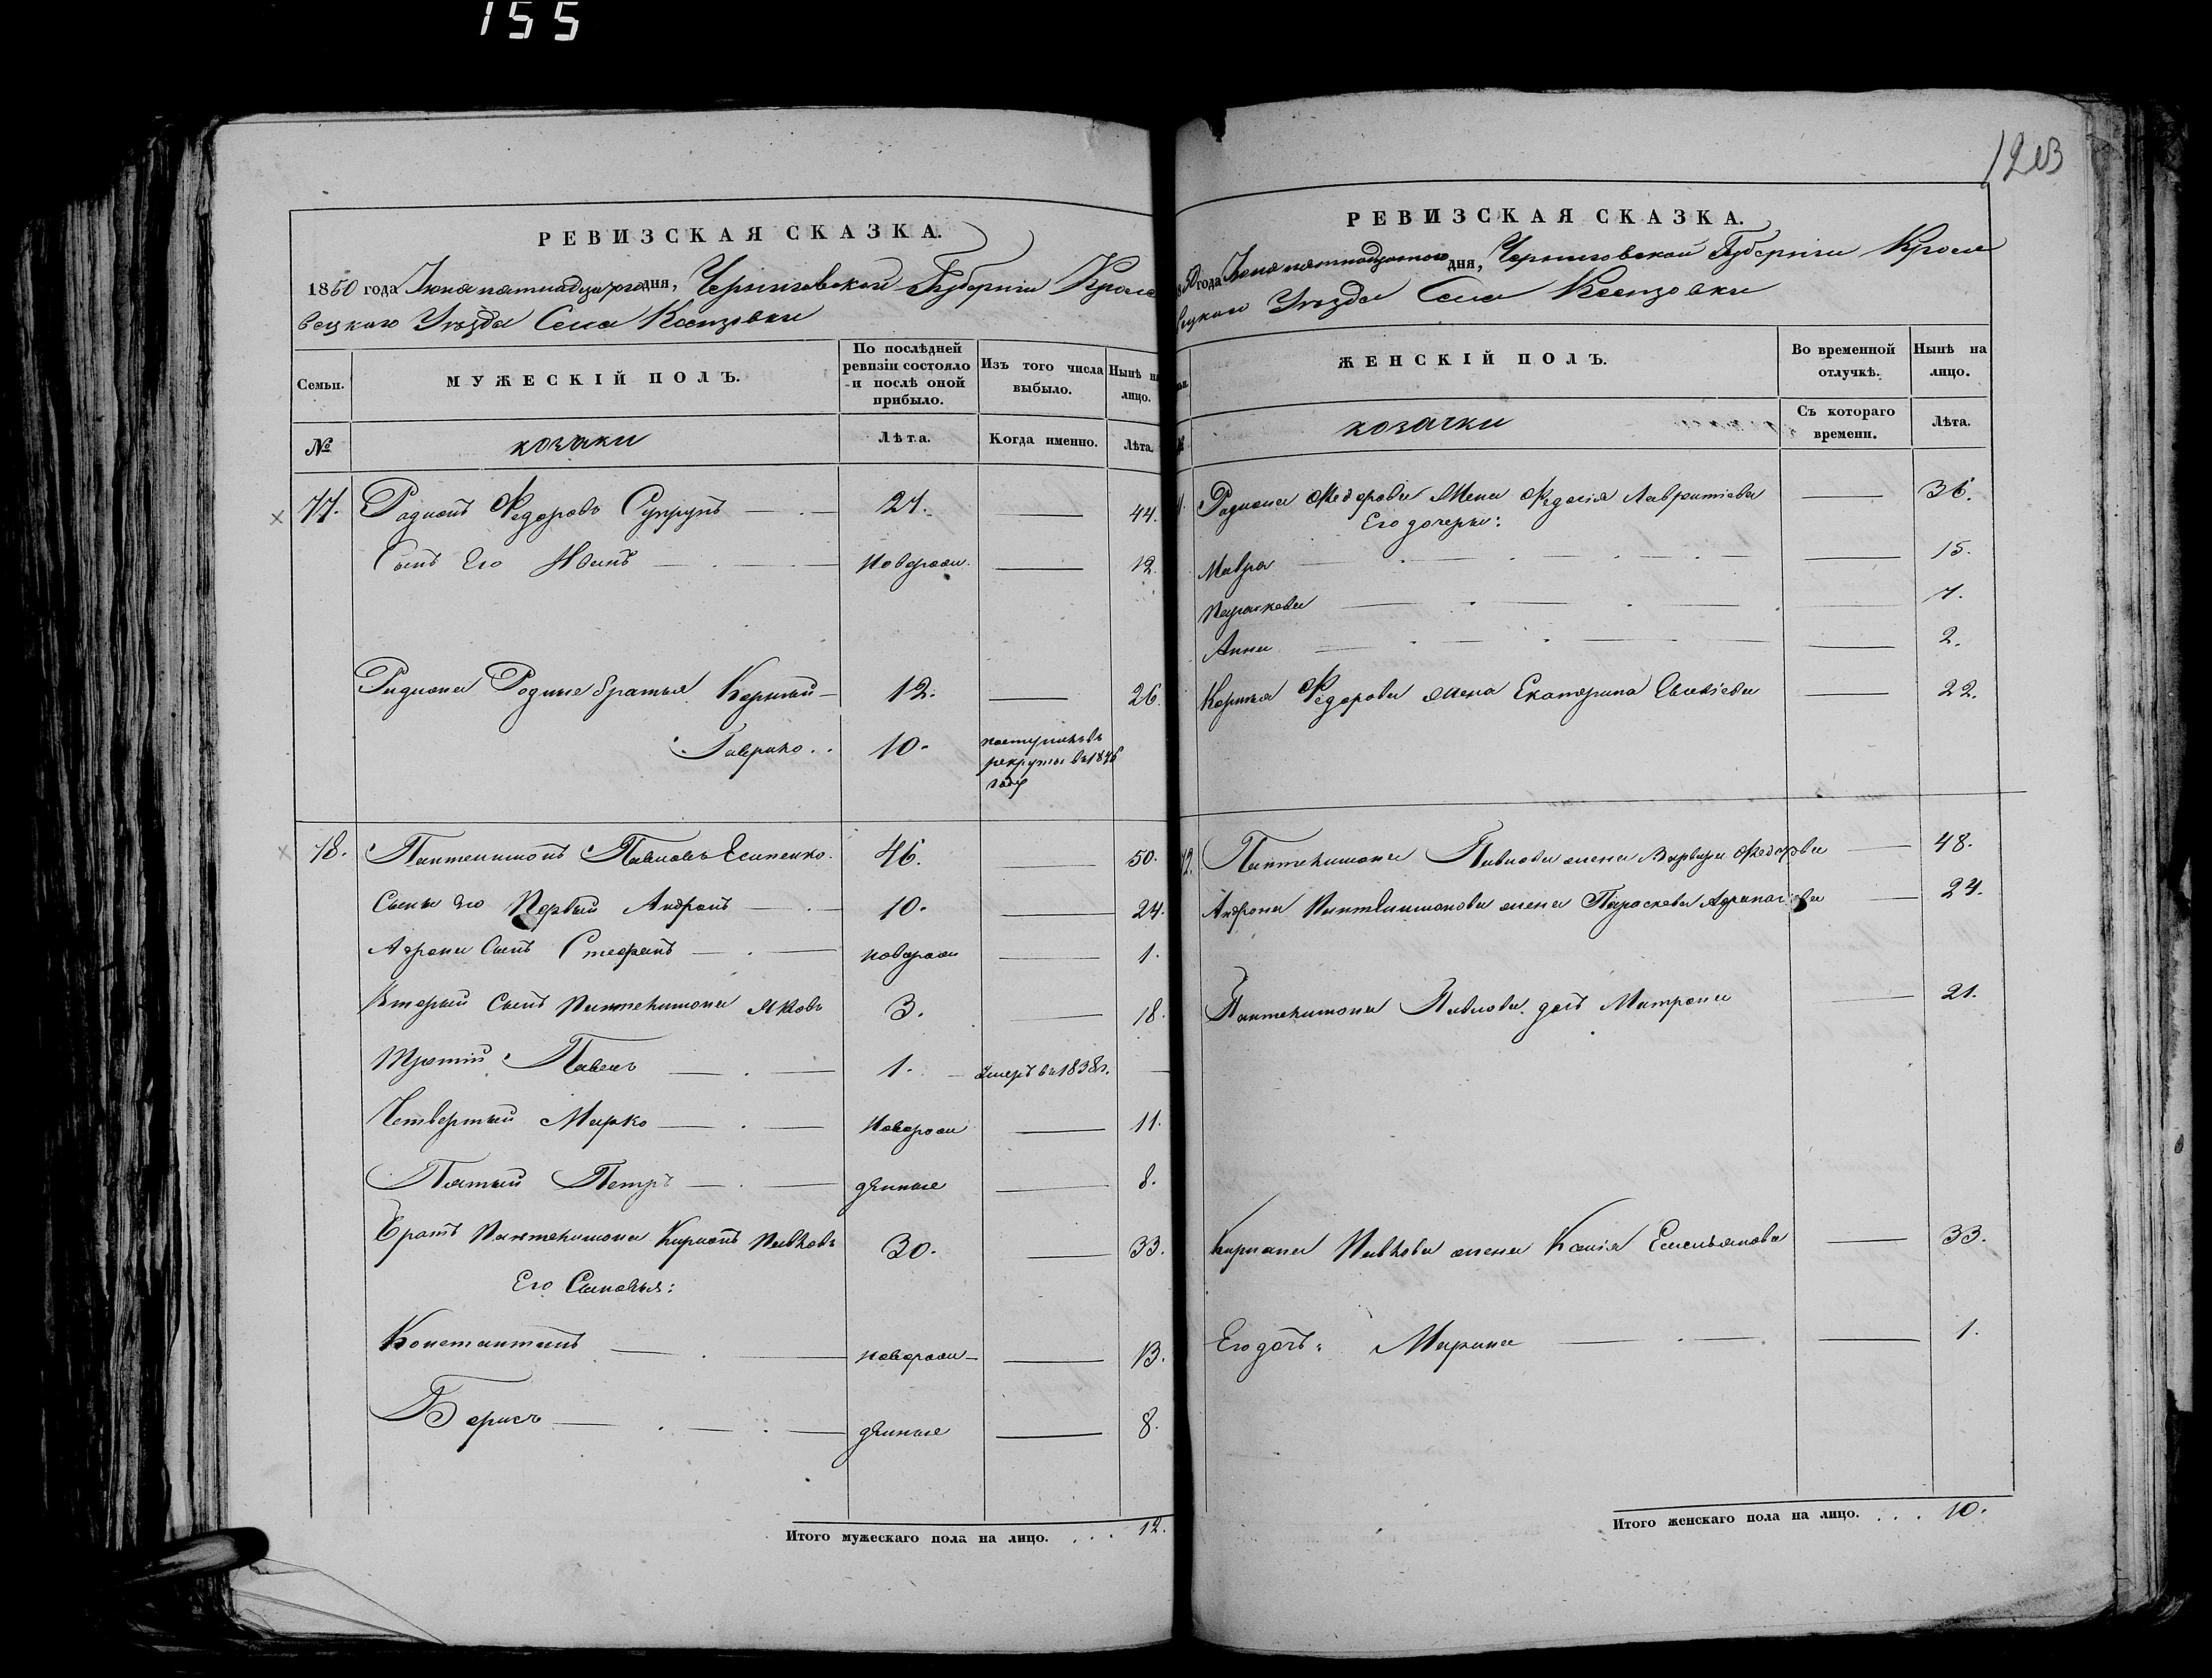 155
РЕВИЗСКАЯ СКАЗКА.
1850 года Іюня пятнадцатого дня, Черниговской Губерніи Кроле
вецкаго Уѣзда Села
Семьи. МУЖЕСКІЙ ПОЛЪ. По послѣдней ревизіи состояло и послѣ оной прибыло. Изъ того числа выбыло. Нынѣ на лицо.
№ козаки Лѣта. Когда именно. Лѣта.
Родионъ Федоровъ Супрунъ 44.
Сынъ Его Иванъ новорож. 12.
Родиона Родные братья Корнѣй 12. 26.
Гаврило 10. поступилъ въ
рекруты въ 1846
году
Пантелимонъ Павловъ Есипенко. 46. 50.
Сыны Его Первый Андронъ 10. 24.
Сынъ Стефанъ новорож 1.
Вторый Сынъ Пантелимона Яковъ 3. 18.
Третій Павелъ 1. умеръ въ 1838 г.
Четвертый Марко новорож 11.
Пятый Петръ денные 8.
Братъ Пантелимона Павловъ 30. 33.
Его Сыновья:
Константинъ новорож 13.
Борисъ денные 8.
Итого мужескаго пола на лицо. . . . 12.
1203
РЕВИЗСКАЯ СКАЗКА.
1850 года Іюня пятнадцатого дня, Черниговской Губерніи Кроле
вецкаго Уѣзда Села
ЖЕНСКІЙ ПОЛЪ. Во временной отлучкѣ. Нынѣ на лицо.
№ козачки Съ котораго времени. Лѣта.
Родиона Федорова Жена Федосія Лаврентіева 36.
Его дочери:
Мавра 15.
Параскева 7.
Анна 2.
Корнѣя Федорова жена Екатерина 22.
Пантелимона Павлова жена Варвара Федорова 48.
Андрона Пантелимонова жена Параскева 24.
Пантелимона Павлова дочь Матрона 21.
Павлова жена Емельянова 33.
Его дочь: Марина 1.
Итого женскаго пола на лицо. . . . 10.